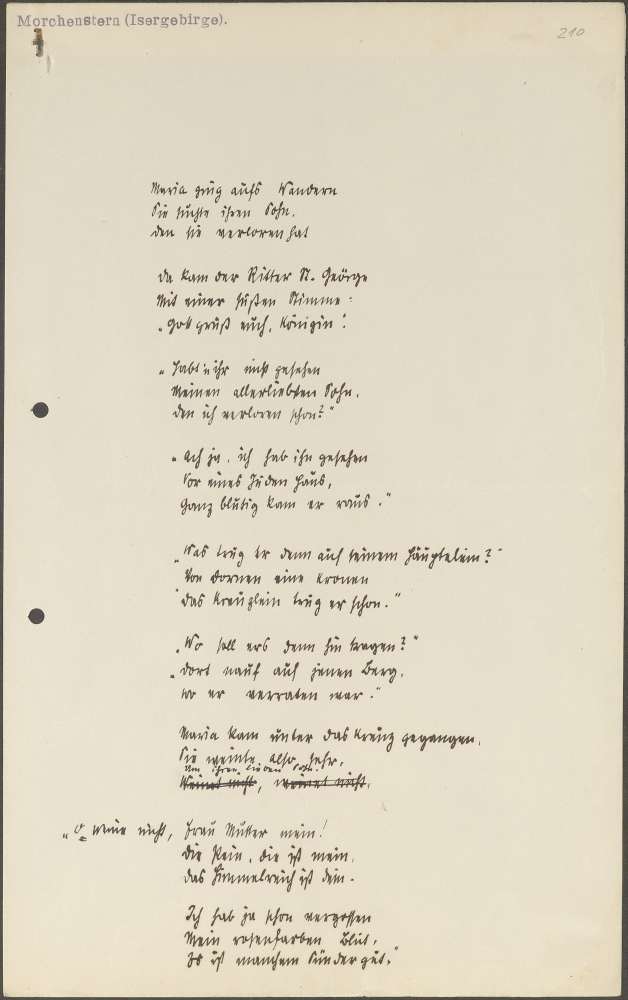 Morchenstern (Isergebirge).
210
Maria ging aufs Wandern
Sie suchte ihren Sohn.
den sie verloren hat
da kam der Ritter St. George
Mit einer süßen Stimme:
„Gott grüß euch, Königin!
„Habt ihr nicht gesehen
Meinen allerliebsten Sohn,
den ich verloren schon?"
„Ach ja, ich hab ihn gesehen
Vor eines Juden Haus,
Ganz blutig kam er raus."
„Was trug er denn auf seinem Häuptelein?"
Von dornen eine Kronen
das Kreuzlein trug er schon."
„Wo soll ers denn hin tragen?"
„dort nauf auf jenen Berg,
wo er verraten war."
Maria kam unter das Kreuz gegangen,
Sie weinte also sehr,
um ihren lieben Sohn.
Weinet nicht, weinet nicht,
„O weine nicht, Frau Mutter mein!
die Pein, die ist mein,
das Himmelreich ist dein.
Ich hab ja schon vergossen
Mein rosenfarben Blut,
Es ist manchem Sünder gut."